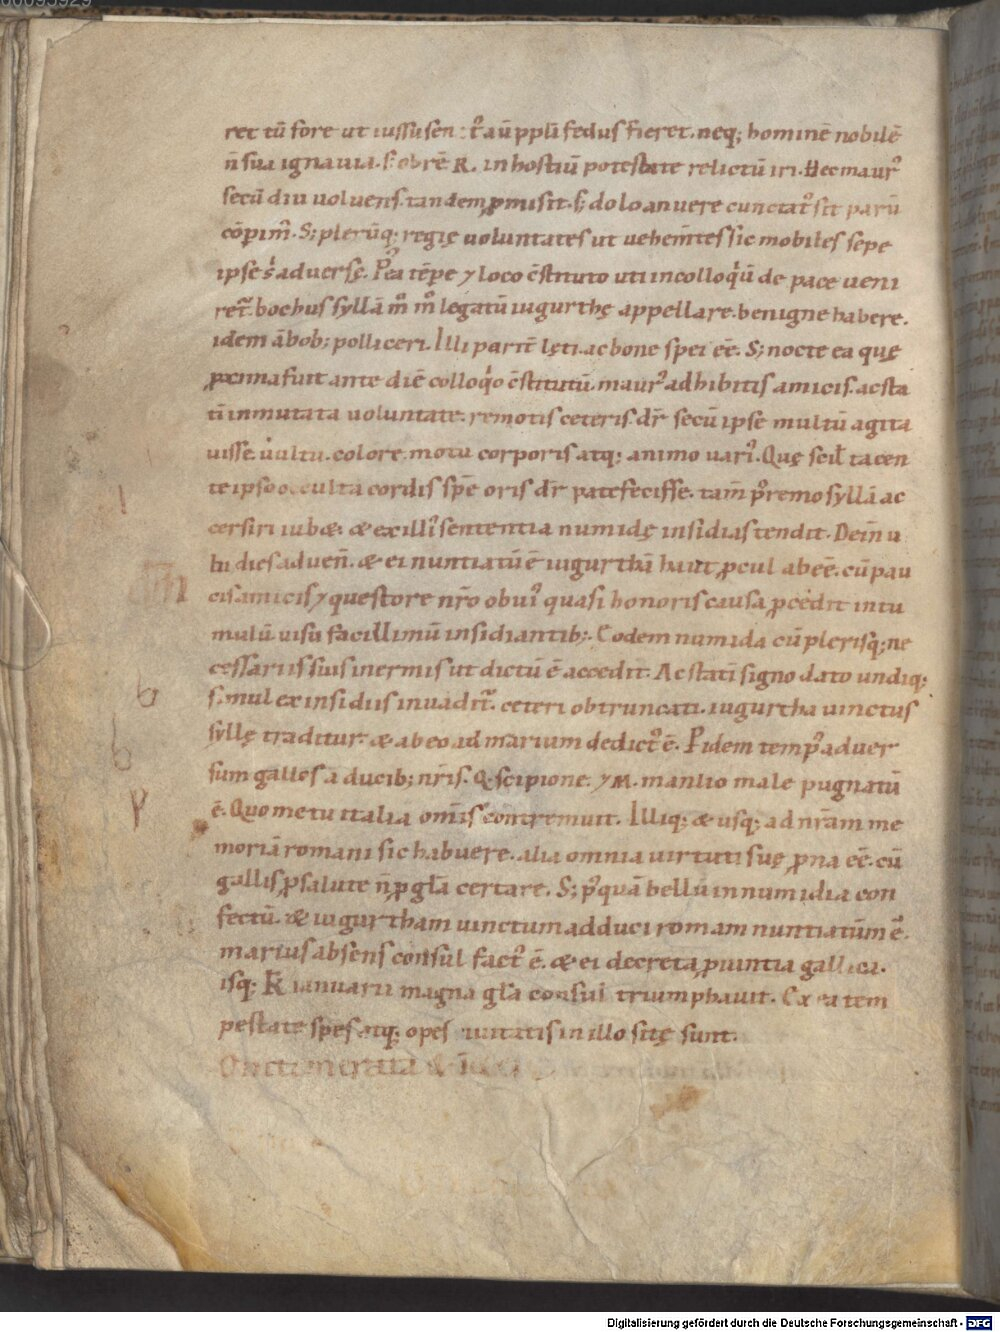 ret tū fore ut iussu sen. t̄ aū ppłi fedus fieret. neq; hominē nobilē
n̄ sua ignauia. s; ob rē R. in hostiū potestate relictū iri. Hec maur᾿
secū diu uoluens. tandem ꝓmisit. s; dolo an uere cunctat᾿ sit parū
cōpim᾿. S; plerūq; regię uoluntates ut uehem̄tes sic mobiles sepe
ipsę s᾿ aduersę. Pͦea tēpe ⁊ loco c̄stituto uti in colloq᾿ū de pace ueni
ret᾿. bochus syllā mͦ mͦ legatū iugurthę appellare. benigne habere.
idem ābob; polliceri. Illi parit̄ lęti. ac bone spei eē. S; nocte ea quę
ꝓxima fuit ante diē colloq᾿o c̄stitutū. maur᾿ adhibitis amicis. ac sta
tī inmutata uoluntate. remotis ceteris. dr̄ secū ipse multū agita
uisse. uultu. colore. motu corporis atq; animo uari᾿. Quę scił tacen
te ipso occulta cordis spē oris dr̄ patefecisse. tam̄ p᾿remo syllā ac
cersiri iub&. & ex illi᾿ sententia numidę insidias tendit. Dein̄ u
bi dies aduen̄. & ei nuntiatū ē iugurthā haut ꝓcul abeē. cū pau
cis amicis ⁊ questore nr̄o obui᾿ quasi honoris causa ꝓcedit in tu
mulū uisu facillimū insidiantib;. Eodem numida cū plerisq; ne
cessariis suis inermis ut dictū ē accedit. Ac statī signo dato undiq;
simul ex insidiis inuadit᾿. ceteri obtruncati. iugurtha uinctus
syllę traditur. & ab eo ad marium deduct᾿ ē. P idem temp᾿ aduer
sum gallos a ducib; nr̄is. Q. scipione. ⁊ M. manlio male pugnatū
ē. Quo metu italia om̄is contremuit. Illiq; & usq; ad nr̄am me
moriā romani sic habuere. alia omnia uirtuti suę ꝓna eē. cū
gallis ꝓ salute n̄ ꝓ gła certare. S; p᾿quā bellū in numidia con
fectū. & iugurtham uinctum adduci romam nuntiatūm ē.
marius absens consul fact᾿ ē. & ei decreta ꝓuintia gallica.
isq; K ianuarii magna gła consul triumphauit. Ex ea tem
pestate spes atq; opes ciuitatis in illo sitę sunt.
b
b